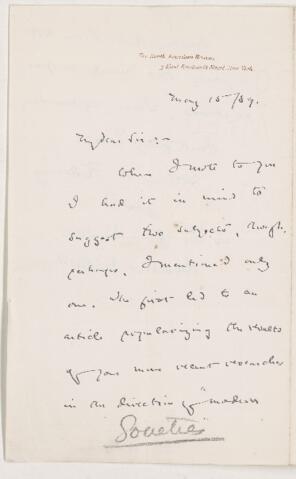 The North American Review
3 East Fourteenth Street, New York.
May 15/89.
My dear Sir:-
When I wrote to you
I had it in mind to
suggest two subjects, though,
perhaps, I mentioned only
one. The first led to an
article popularizing the results
of your more recent researches
in the direction of "modern
Societies